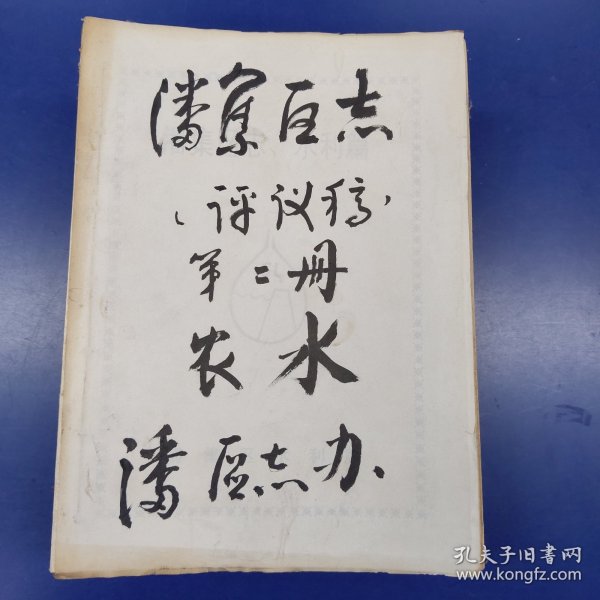 潘集区志
（评议稿）
第二册
农水
潘区志办
孔夫子旧書网
www.kongfz.com